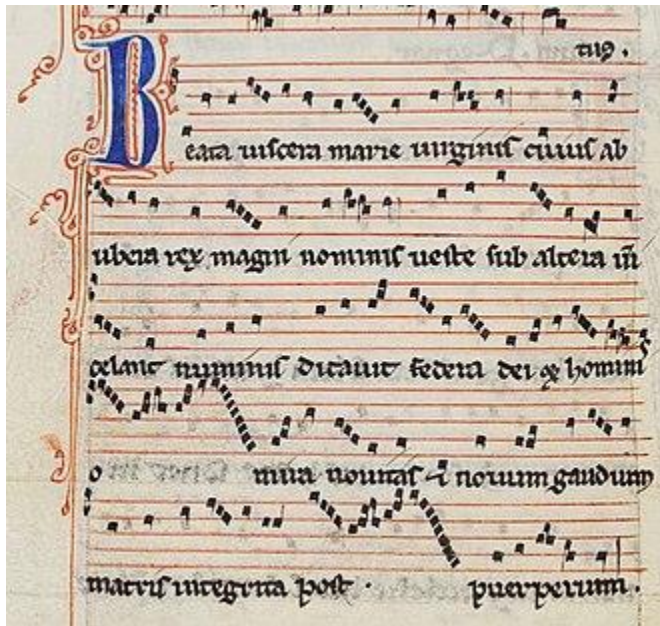 tus.
Beata uiscera marie uirginis cuius ab
ubera rex magni nominis ueste sub altera uī
celauit numinis dictauit federa dei & hominis
o mira nouitas & nouum gaudium
matris integrita post puerperium.